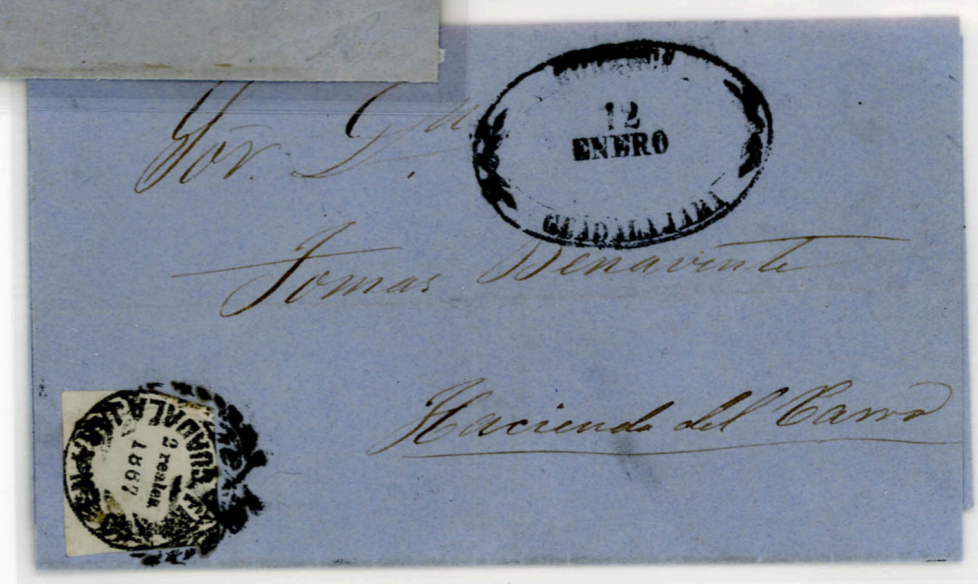 Sór. Dn.
12
ENERO
GUADALAJARA
Tomas Benavente
Hacienda del Carro
GUADALAJARA
2 reales
1867